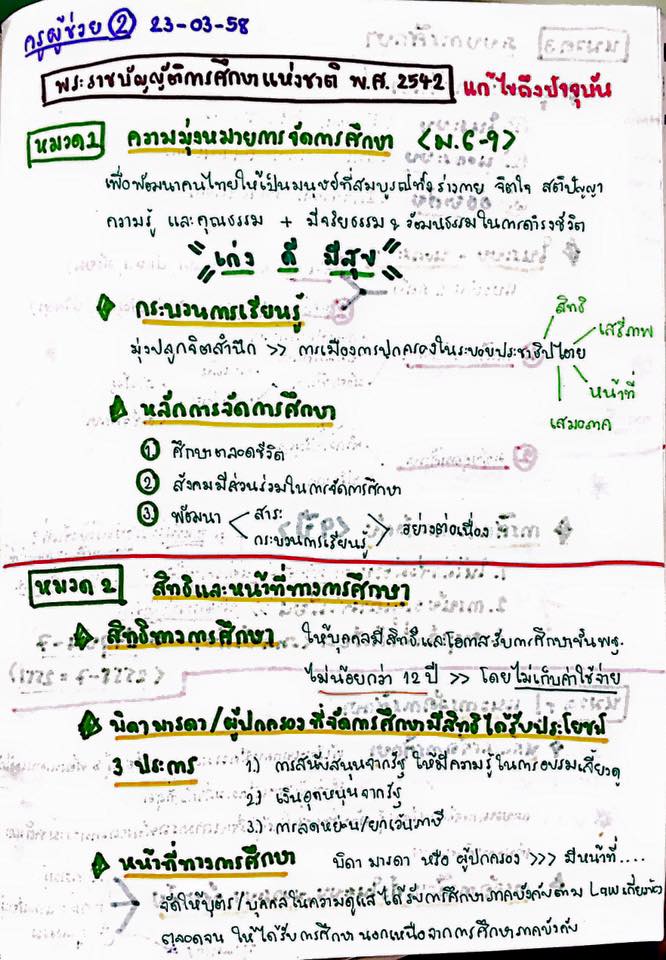 ครูผู้ช่วย ② 23-03-58
พระราชบัญญัติการศึกษาแห่งชาติ พ.ศ. 2542 แก้ไขถึงปัจจุบัน
หมวด 1 ความมุ่งหมายการจัดการศึกษา <ม.6-9>
เพื่อพัฒนาคนไทยให้เป็นมนุษย์ที่สมบูรณ์ทั้งร่างกาย จิตใจ สติปัญญา
ความรู้ และคุณธรรม + มีจริยธรรม & วัฒนธรรมในการดำรงชีวิต
"เก่ง ดี มีสุข"
กระบวนการเรียนรู้
มุ่งปลูกจิตสำนึก >> การเมืองการปกครองในระบอบประชาธิปไตย
สิทธิ
เสรีภาพ
หน้าที่
เสมอภาค
หลักการจัดการศึกษา
① ศึกษาตลอดชีวิต
② สังคมมีส่วนร่วมในการจัดการศึกษา
③ พัฒนา < สาระ
กระบวนการเรียนรู้ > อย่างต่อเนื่อง
หมวด 2 สิทธิและหน้าที่ทางการศึกษา
สิทธิทางการศึกษา ให้บุคคลมีสิทธิและโอกาสรับการศึกษาขั้นพฐ.
ไม่น้อยกว่า 12 ปี >> โดยไม่เก็บค่าใช้จ่าย
บิดา มารดา/ผู้ปกครอง ที่จัดการศึกษามีสิทธิได้รับประโยชน์
3 ประการ 1.) การสนับสนุนจากรัฐ ให้มีความรู้ในการอบรมเลี้ยงดู
2.) เงินอุดหนุนจากรัฐ
3.) การลดหย่อน/ยกเว้นภาษี
หน้าที่ทางการศึกษา บิดา มารดา หรือ ผู้ปกครอง >>> มีหน้าที่....
จัดให้บุตร/บุคคลในความดูแล ได้รับการศึกษาภาคบังคับตาม Law เกี่ยวข้อง
ตลอดจน ให้ได้รับการศึกษานอกเหนือจากการศึกษาภาคบังคับ